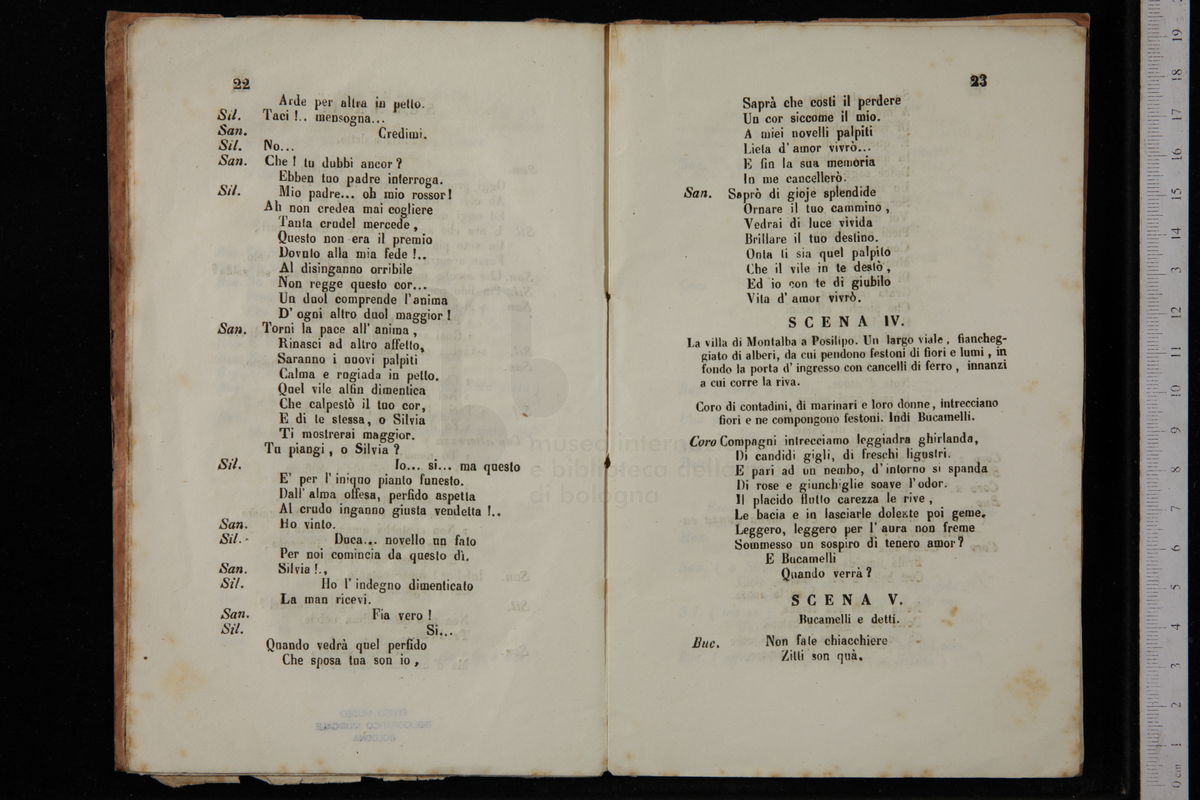 22
Arde per altra in petto.
Sil. Taci !.. mensogna...
San. Credimi.
Sil. No...
San. Che ! tu dubbi ancor ?
Ebben tuo padre interroga.
Sil. Mio padre... oh mio rossor!
Ah non credea mai cogliere
Tanta crudel mercede ,
Questo non era il premio
Dovuto alla mia fede !..
Al disinganno orribile
Non regge questo cor...
Un duol comprende l'anima
D' ogni altro duol maggior !
San. Torni la pace all' anima ,
Rinasci ad altro affetto,
Saranno i nuovi palpiti
Calma e rugiada in petto.
Quel vile alfin dimentica
Che calpestò il tuo cor,
E di te stessa, o Silvia
Ti mostrerai maggior.
Tu piangi , o Silvia ?
Sil. Io... si... ma questo
E' per l' iniquo pianto funesto.
Dall' alma offesa, perfido aspetta
Al crudo inganno giusta vendetta !..
San. Ho vinto.
Sil. Duca... novello un fato
Per noi comincia da questo dì.
San. Silvia !.,
Sil. Ho l' indegno dimenticato
La man ricevi.
San. Fia vero !
Sil. Si...
Quando vedrà quel perfido
Che sposa tua son io ,
23
Saprà che costi il perdere
Un cor siccome il mio.
A miei novelli palpiti
Lieta d' amor vivrò...
E fin la sua memoria
In me cancellerò.
San. Saprò di gioje splendide
Ornare il tuo cammino ,
Vedrai di luce vivida
Brillare il tuo destino.
Onta ti sia quel palpito
Che il vile in te destò ,
Ed io con te di giubilo
Vita d' amor vivrò.
SCENA IV.
La villa di Montalba a Posilipo. Un largo viale , fiancheg-
giato di alberi, da cui pendono festoni di fiori e lumi , in
fondo la porta d' ingresso con cancelli di ferro , innanzi
a cui corre la riva.
Coro di contadini, di marinari e loro donne, intrecciano
fiori e ne compongono festoni. Indi Bucamelli.
Coro Compagni intrecciamo leggiadra ghirlanda,
Di candidi gigli, di freschi ligustri.
E pari ad un nembo, d' intorno si spanda
Di rose e giunchiglie soave l' odor.
Il placido flutto carezza le rive ,
Le bacia e in lasciarle dolente poi geme.
Leggero, leggero per l' aura non freme
Sommesso un sospiro di tenero amor?
E Bucamelli
Quando verrà ?
SCENA V.
Bucamelli e detti.
Buc. Non fate chiacchiere
Zitti son quà.